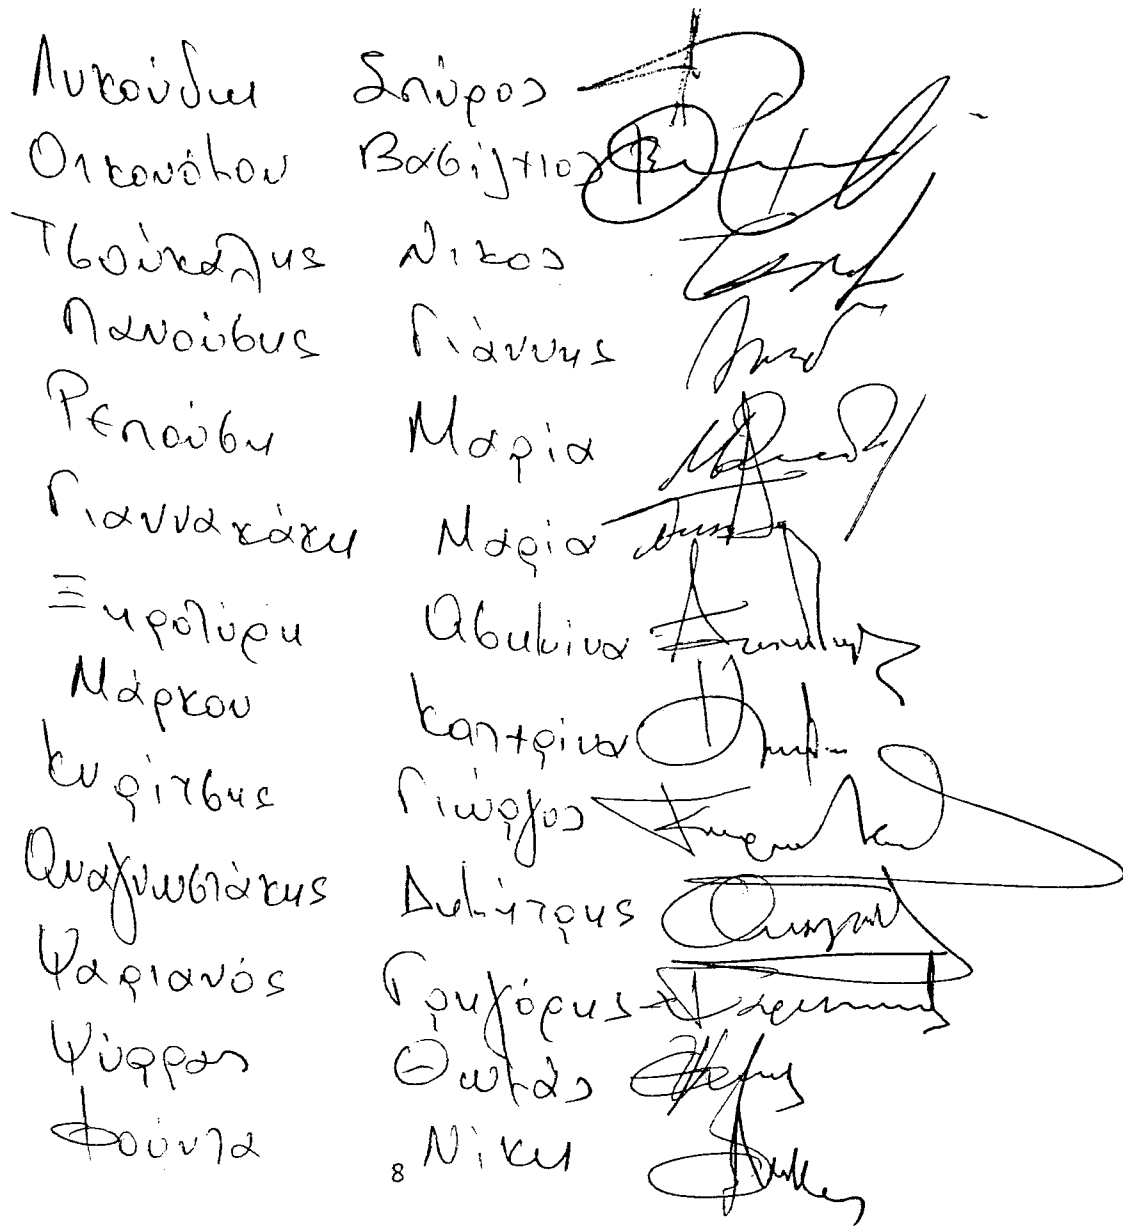 Λυκούδη Σπύρος
Οικονόμου Βασίλειος
Τσούκαλης Νίκος
Πανούσης Γιάννης
Ρεπούση Μαρία
Γιαννακάκη Μαρία
Ξηροτύρη Ασημίνα
Μάρκου Κατερίνα
Κυρίτσης Γιώργος
Αναγνωστάκης Δημήτρης
Ψαριανός Γρηγόρης
Ψύρρας Θωμάς
Φούντα Νίκη
8